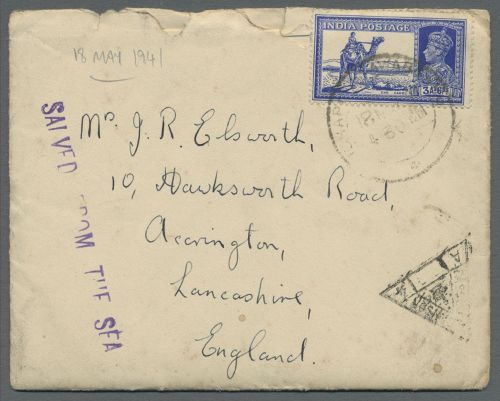 18 MAY 1941
INDIA POSTAGE
3As
SALVED FROM THE SEA
Mr J. R. Elsworth,
10, Hawksworth Road,
Accrington,
Lancashire,
England.